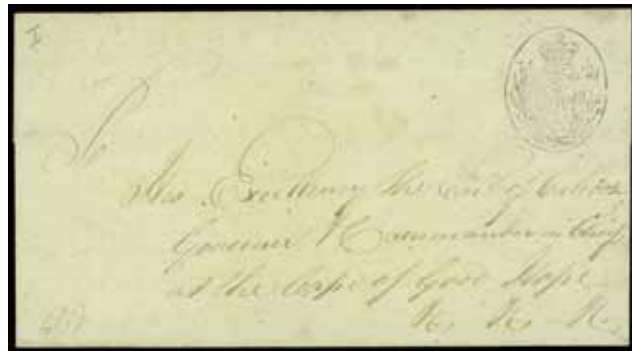 I
To
His Excellency the Earl of Caledon
Governor & Commander in Chief
at the Cape of Good Hope